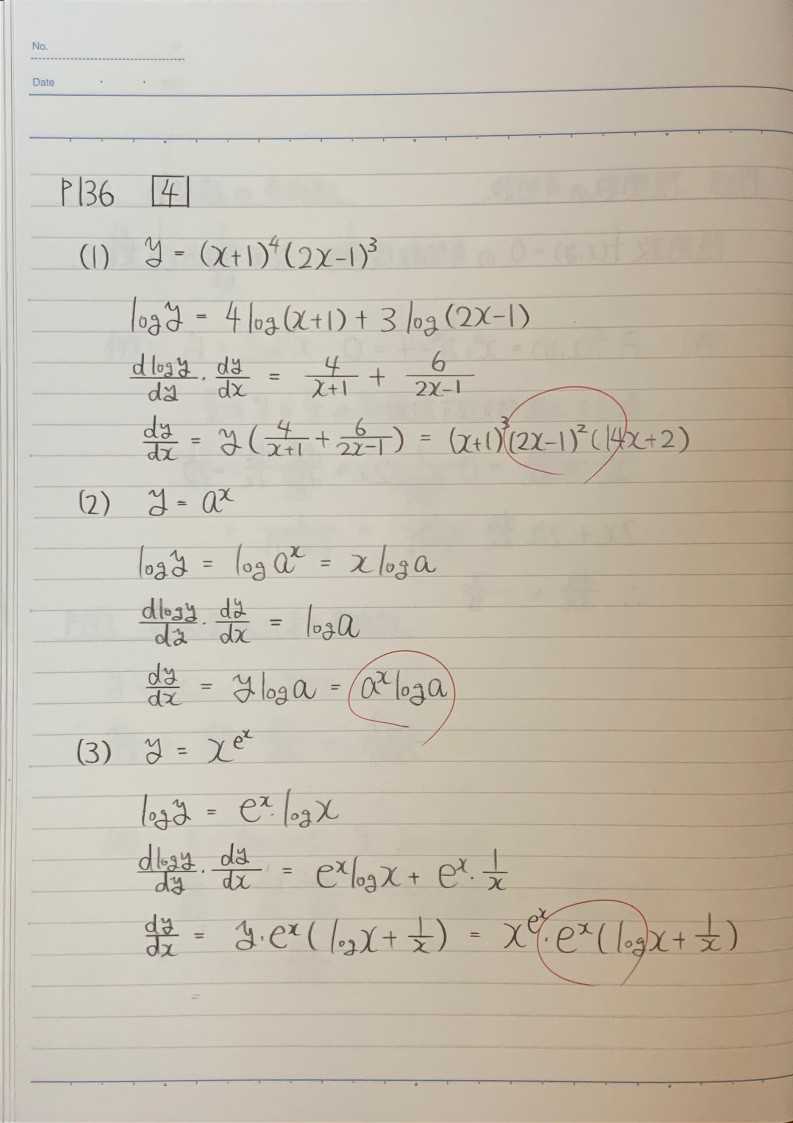 No.
Date
P136 4
(1) y = (x+1)⁴(2x-1)³
log y = 4 log(x+1) + 3 log(2x-1)
dlogy/dy · dy/dx = 4/(x+1) + 6/(2x-1)
dy/dx = y(4/(x+1) + 6/(2x-1)) = (x+1)³(2x-1)²(14x+2)
(2) y = aˣ
log y = log aˣ = x log a
dlogy/dy · dy/dx = log a
dy/dx = y log a = aˣ log a
(3) y = x^(eˣ)
log y = eˣ · log x
dlogy/dy · dy/dx = eˣ log x + eˣ · 1/x
dy/dx = y · eˣ(log x + 1/x) = x^(eˣ) · eˣ(log x + 1/x)